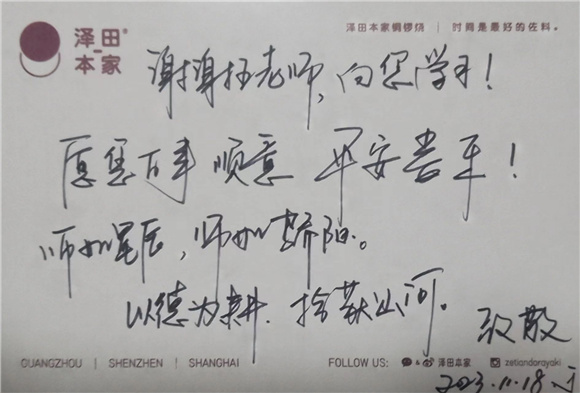 泽田®
本家
泽田本家铜锣烧 | 时间是最好的佐料。
谢谢汪老师,向您学习!
愿您百事顺意 平安喜乐!
师如星辰,师如骄阳。
以德为耕.拾获山河。
致敬
2023.11.18
GUANGZHOU | SHENZHEN | SHANGHAI
FOLLOW US: & 泽田本家 zetiandorayaki